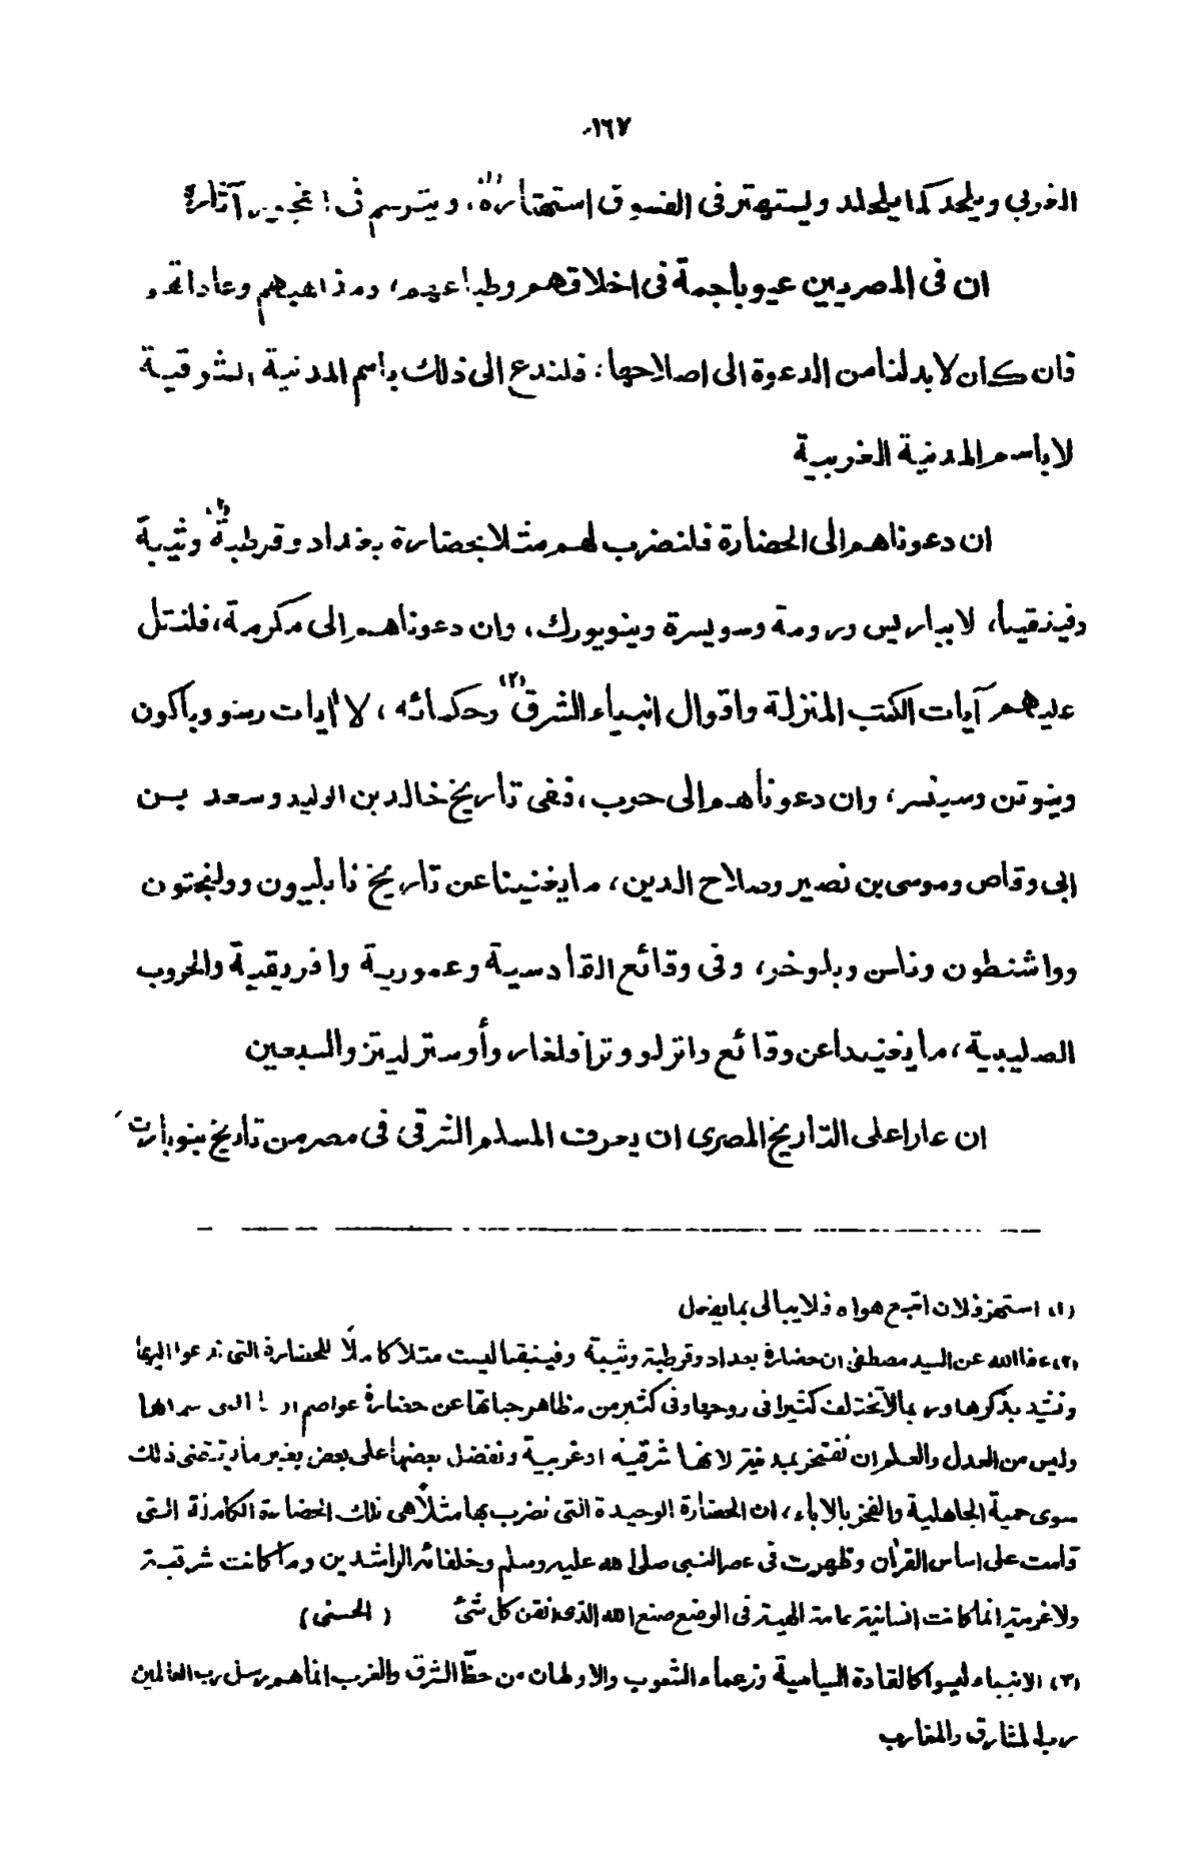 ١٦٧
الغربي ويلحد كما يلحد ويستهتر فى الفسوق استهتاره(١)، ويترسم فى آثاره
ان فى المصريين عيوبا جمة فى اخلاقهم وطباعهم، ومذاهبهم وعاداتهم
فان كان لابد لنا من الدعوة الى اصلاحها، فلندع الى ذلك باسم المدنية الشرقية
لا باسم المدنية الغربية
ان دعوناهم الى الحضارة فلنضرب لهم مثلا بحضارة بغداد وقرطبة(٢) وثيبة
وفينقيا، لا بباريس ورومة وسويسرة ونيويورك، وان دعوناهم الى مكرمة، فلنتل
عليهم آيات الكتب المنزلة واقوال انبياء الشرق(٣) وحكمائه، لا آيات رسو وباكون
ونيوتن وسبنسر، وان دعوناهم الى حرب، ففى تاريخ خالد بن الوليد وسعد بن
ابى وقاص وموسى بن نصير وصلاح الدين، ما يغنينا عن تاريخ نابليون وولنجتون
وواشنطون وناسن وبلوخر، وفى وقائع القادسية وعمورية وافريقية والحروب
الصليبية، ما يغنينا عن وقائع واترلو وترافلغار وأوسترليتز والسبعين
ان عارا على التاريخ المصرى ان يعرف المسلم الشرقى فى مصر من تاريخ بونابارت
(١) استهتر فلان اتبع هواه فلا يبالى بما يفعل
(٢) عفا الله عن السيد مصطفى ان حضارة بغداد وقرطبة وثيبة وفينيقيا ليست مثلا كاملًا للحضارة التى ندعو اليها
ونشيد بذكرها وربما لا تختلف كثيرا فى روحها وفى كثير من مظاهر حياتها عن حضارة عواصم التى سماها
وليس من العدل والعلم ان نفتخر بمدنية لانها شرقية او غربية ونفضل بعضها على بعض بغير ما يقتضى ذلك
سوى حمية الجاهلية والفخر بالاباء، ان الحضارة الوحيدة التى نضرب بها مثلاً هى تلك الحضارة الكاملة التى
قامت على اساس القرآن وظهرت فى عصر النبى صلى الله عليه وسلم وخلفائه الراشدين وما كانت شرقية
ولا غربية انما كانت انسانية عامة الهية فى الوضع صنع الله الذى اتقن كل شئ (الحسنى)
(٣) الانبياء ليسوا كالقادة السياسية وزعماء الشعوب والاوطان من حظّ الشرق والغرب انما هم رسل رب العالمين
رب المشارق والمغارب